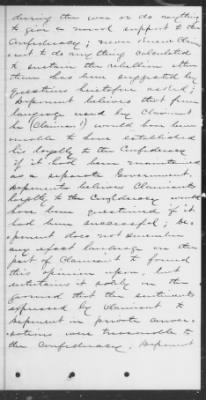 during the war or do anything
to give a moral support to the
Confederacy; never
sent to do anything calculated
to sustain the rebellion other
than has been suggested by
questions heretofore asked;
Deponent believes that from
language used by Claimant
he (Claimant) would have been
unable to have established
his loyalty to the Confederacy
if it had been maintained
as a separate Government.
Deponent believes Claimants
loyalty to the Confederacy would
have been questioned if it
had been successful; De-
ponent does not remember
any exact language on the
part of Claimant to found
this opinion upon, but
entertains it solely on the
ground that the sentiments
expressed by Claimant to
deponent in private conver-
sations were treasonable to
the Confederacy. Deponent